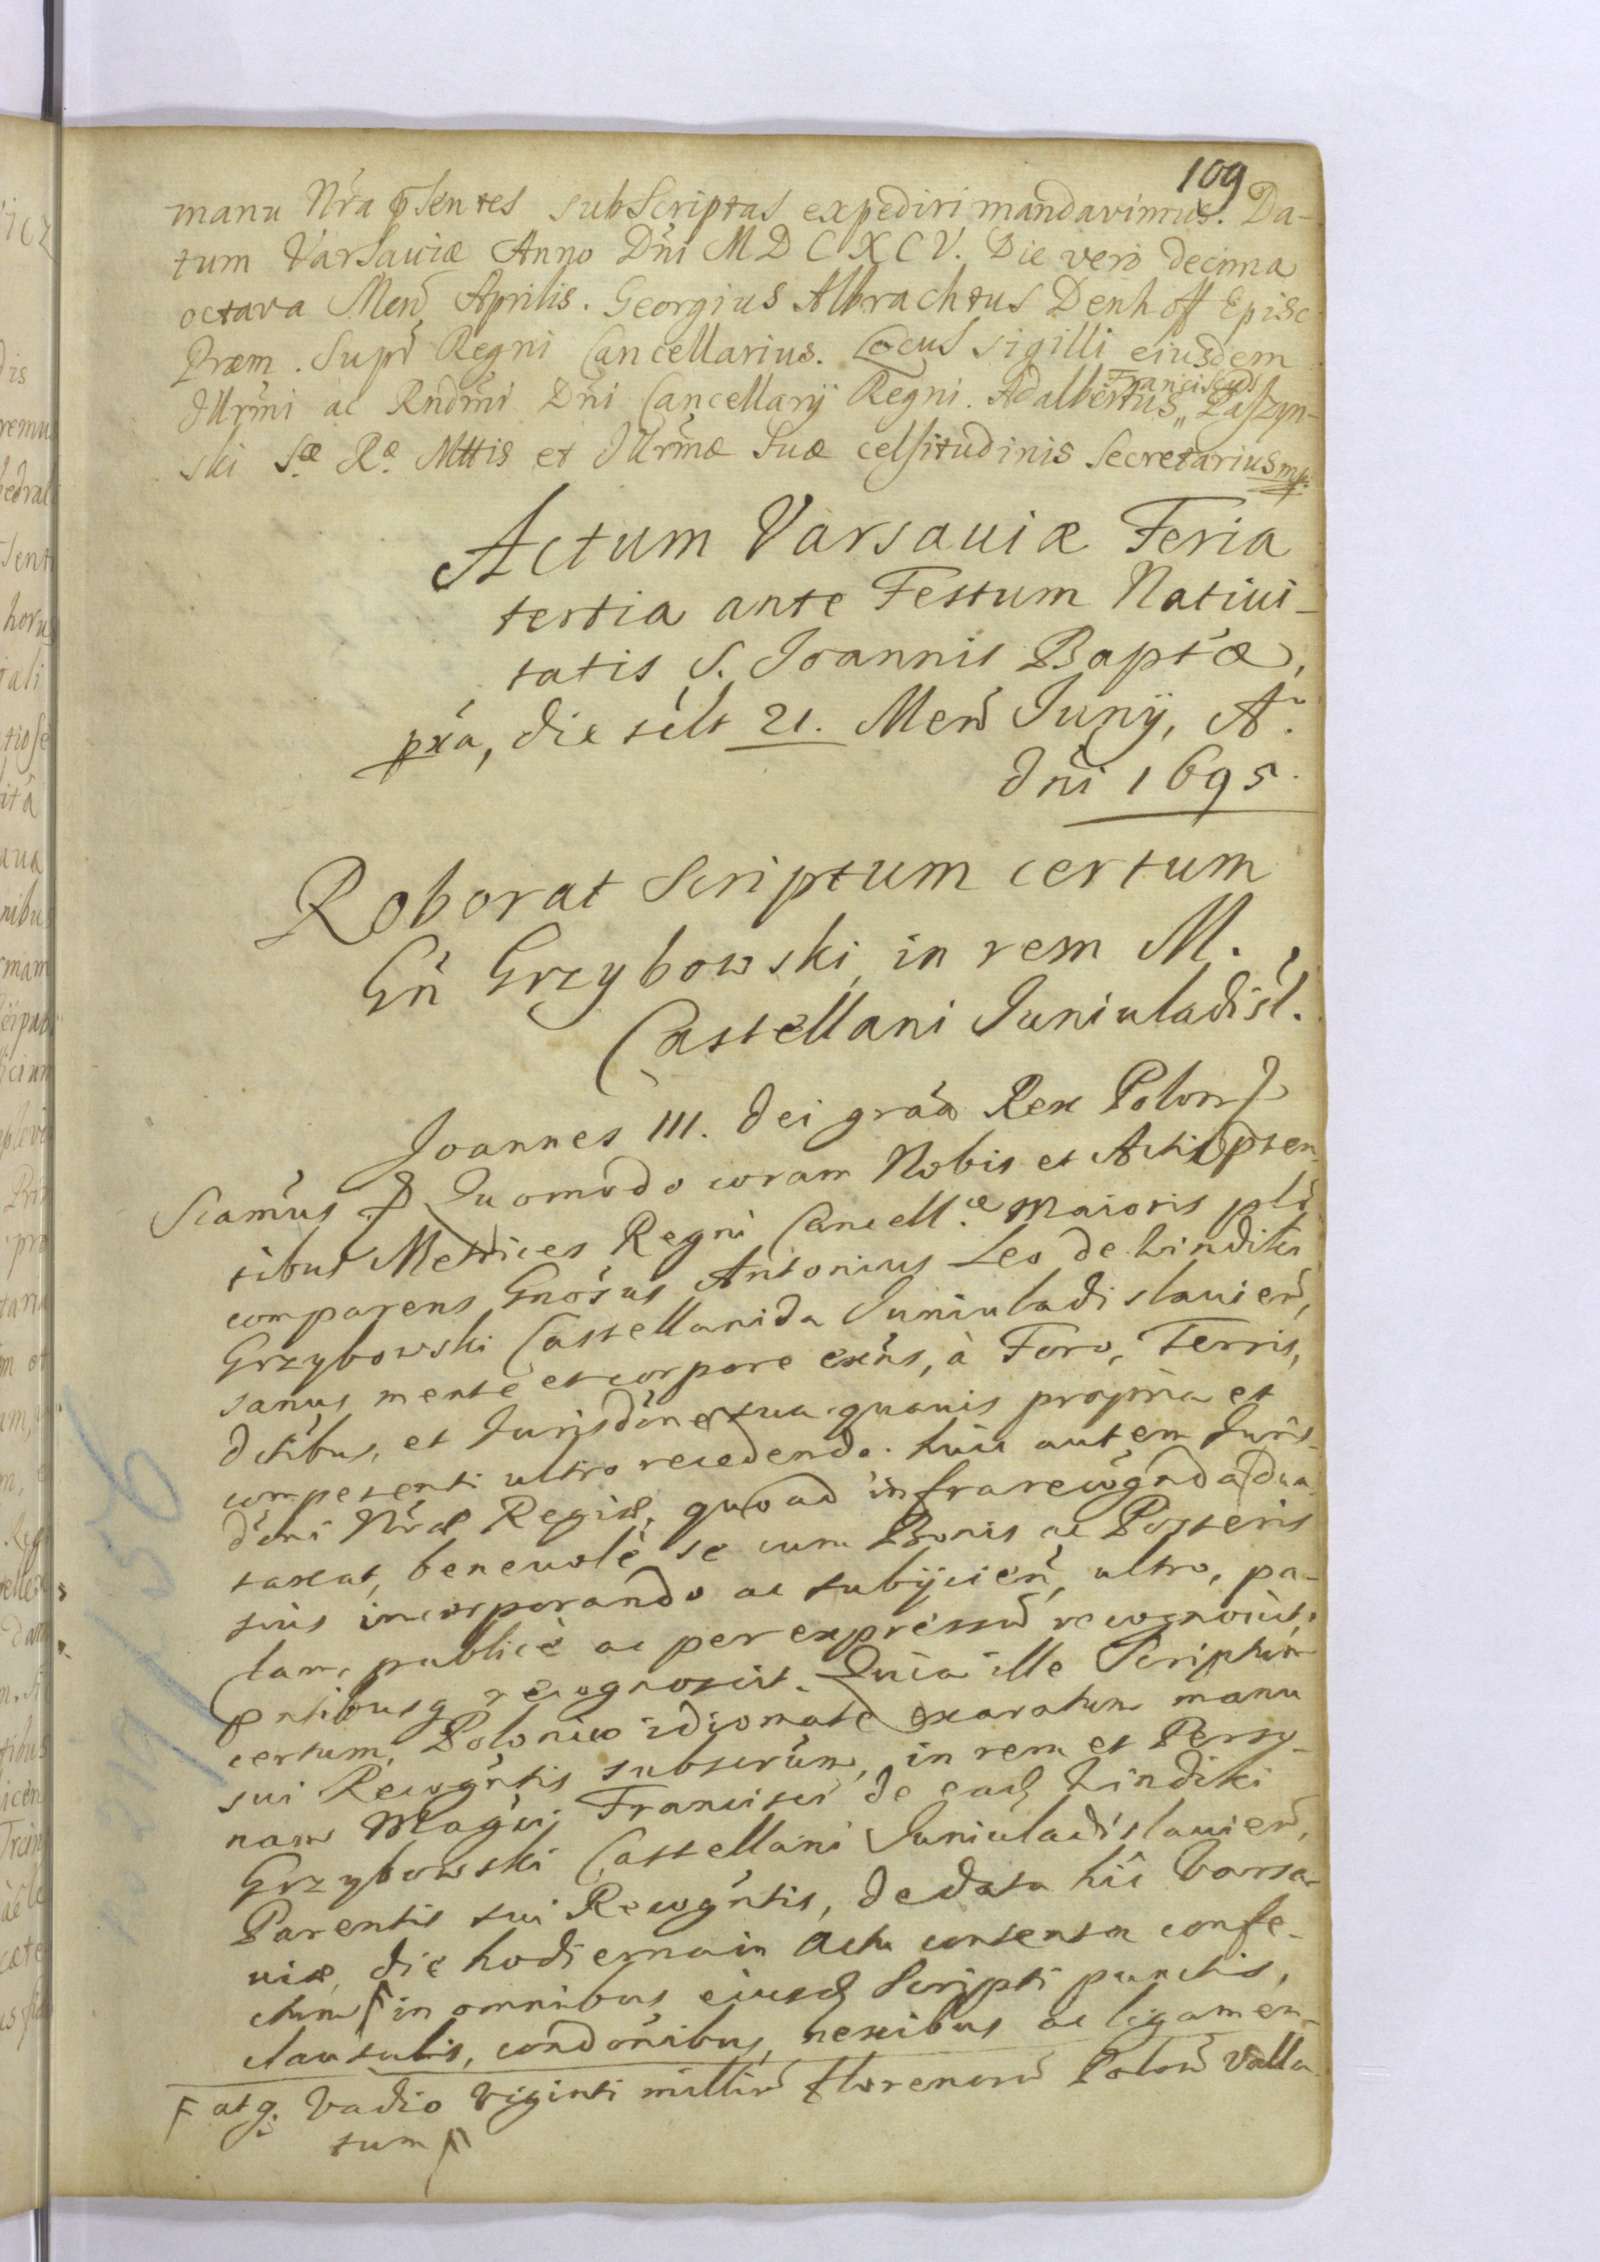 109
manu Nra pnsentes subscriptas expediri mandavimus. Da-
tum Varsaviæ Anno Dni MDCXCV. Die vero decima
octava Mens Aprilis. Georgius Albrachtus Denhoff Episc
Præm. Supr Regni Cancellarius. Locus sigilli eiusdem
Illrmi ac Rndmi Dni Cancellarÿ Regni. Adalbertus Franciscus Paszyn-
ski Sæ Ræ Mttis et Illrmæ Suæ celsitudinis Secretarius mp.
Actum Varsauiæ Feria
tertia ante Festum Natiui-
tatis S. Joannis Baptæ,
pxa, die scilt 21. Mens Junÿ, Ao.
dni 1695.
Roborat Scriptum certum
Gn Grzybowski, in rem M.
Castellani Juniuladisl.
Joannes III. dei gráa Rex Polon
Scamus Quomodo coram Nobis et Actis pnsen
tibus Metrices Regni Cancellæ Maioris plr
comparens Gnosus Antonius Leo de Windiki
Grzybowski Castellanida Juniuladislauien,
sanus mente et corpore exns, à Foro, Terris,
dctibus, et Jurisdone sua quauis propria et
competenti ultro recedendo. huic autem Juris-
doni Nræ Regiæ, quoad infrarecognda dun-
taxat, beneuolè se cum Bonis ac Posteris
suis incorporando ac subÿcien, ultro, pa-
lam, publicè ac per expressum recognouit.
pntibusq recognoscit. Quia ille Scriptum
certum, Polonico idiomate exaratum manu
sui Recogntis subscrum, in rem et Perso-
nam Magci Francisci de ead Windiki
Grzybowski Castellani Juniuladislauien,
Parentis sui Recogntis, de data hic Varsa-
uiæ, die hodierna in Actu contenta confe-
ctum in omnibus eiusd Scripti punctis,
clausulis, condonibus, nexibus ac ligamen-
atq. Vadio viginti millium florenorum Polon Valla-
tum